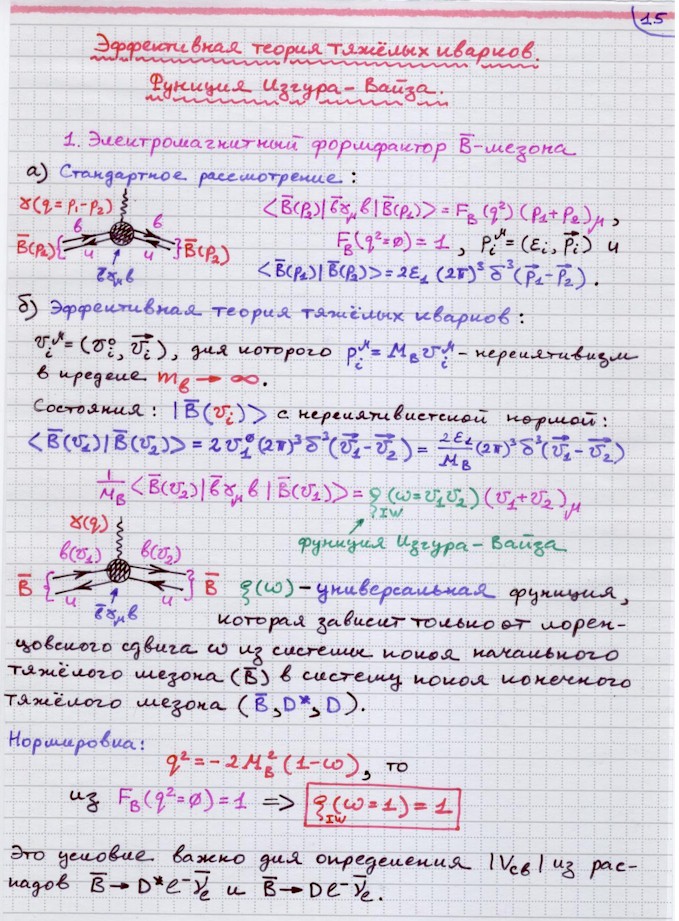 15
Эффективная теория тяжёлых кварков.
Функция Изгура-Вайза.
1. Электромагнитный формфактор B̅-мезона
а) Стандартное рассмотрение:
γ(q = p₁-p₂)
b b
B̅(p₁){ u u }B̅(p₂)
b̅γ_μ b
<B̅(p₂)|b̅γ_μ b|B̅(p₁)> = F_B(q²)(p₁+p₂)_μ,
F_B(q²=0)=1, p_i^μ=(ε_i, p⃗_i) и
<B̅(p₁)|B̅(p₂)>=2ε₁(2π)³δ³(p⃗₁-p⃗₂).
б) Эффективная теория тяжёлых кварков:
v_i^μ=(v_i⁰, v⃗_i), для которого p_i^μ=M_B v_i^μ - нерелятивизм
в пределе m_b → ∞.
Состояния: |B̅(v_i)> с нерелятивистской нормой:
<B̅(v₁)|B̅(v₂)> = 2v₁⁰(2π)³δ³(v⃗₁-v⃗₂) = 2ε₁/M_B (2π)³δ³(v⃗₁-v⃗₂)
1/M_B <B̅(v₂)|b̅γ_μ b|B̅(v₁)> = ξ_IW(ω=v₁v₂)(v₁+v₂)_μ
функция Изгура-Вайза
γ(q)
b(v₁) b(v₂)
B̅ { u u } B̅
b̅γ_μ b
ξ(ω) - универсальная функция,
которая зависит только от лорен-
цовского сдвига ω из системы покоя начального
тяжёлого мезона (B̅) в систему покоя конечного
тяжёлого мезона (B̅, D*, D).
Нормировка:
q² = -2M_B²(1-ω), то
из F_B(q²=0)=1 => ξ_IW(ω=1)=1
Это условие важно для определения |V_cb| из рас-
падов B̅→D*e⁻ν̅_e и B̅→De⁻ν̅_e.